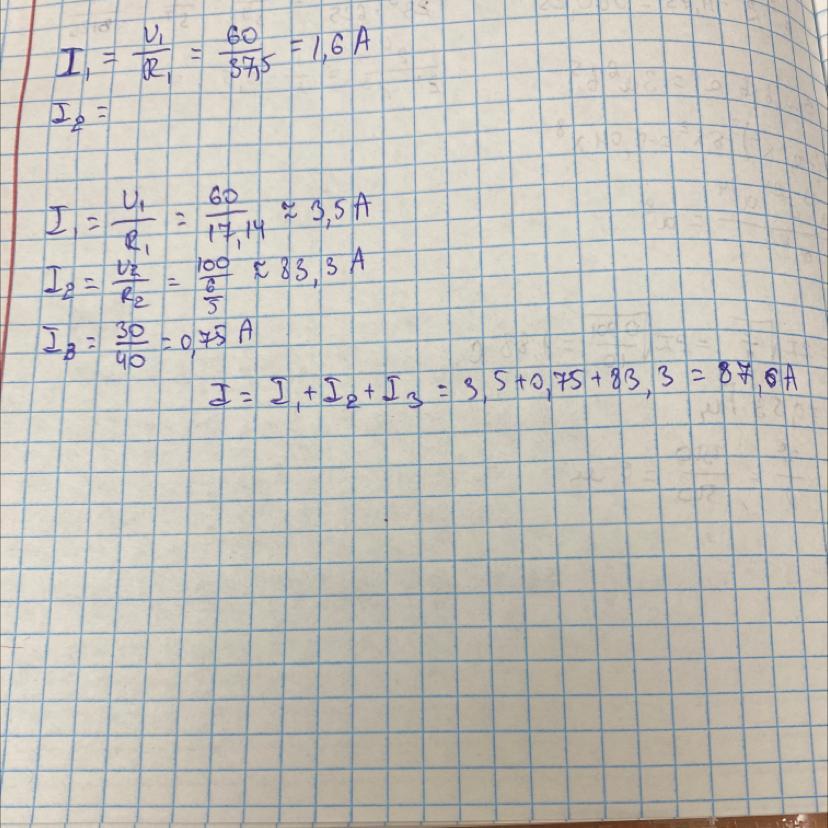 I₁ = U₁/R₁ = 60/37,5 = 1,6 A
I₂ =
I₁ = U₁/R₁ = 60/17,14 ≈ 3,5 A
I₂ = U₂/R₂ = 100/(6/5) ≈ 83,3 A
I₃ = 30/40 = 0,75 A
I = I₁ + I₂ + I₃ = 3,5 + 0,75 + 83,3 = 87,6 A